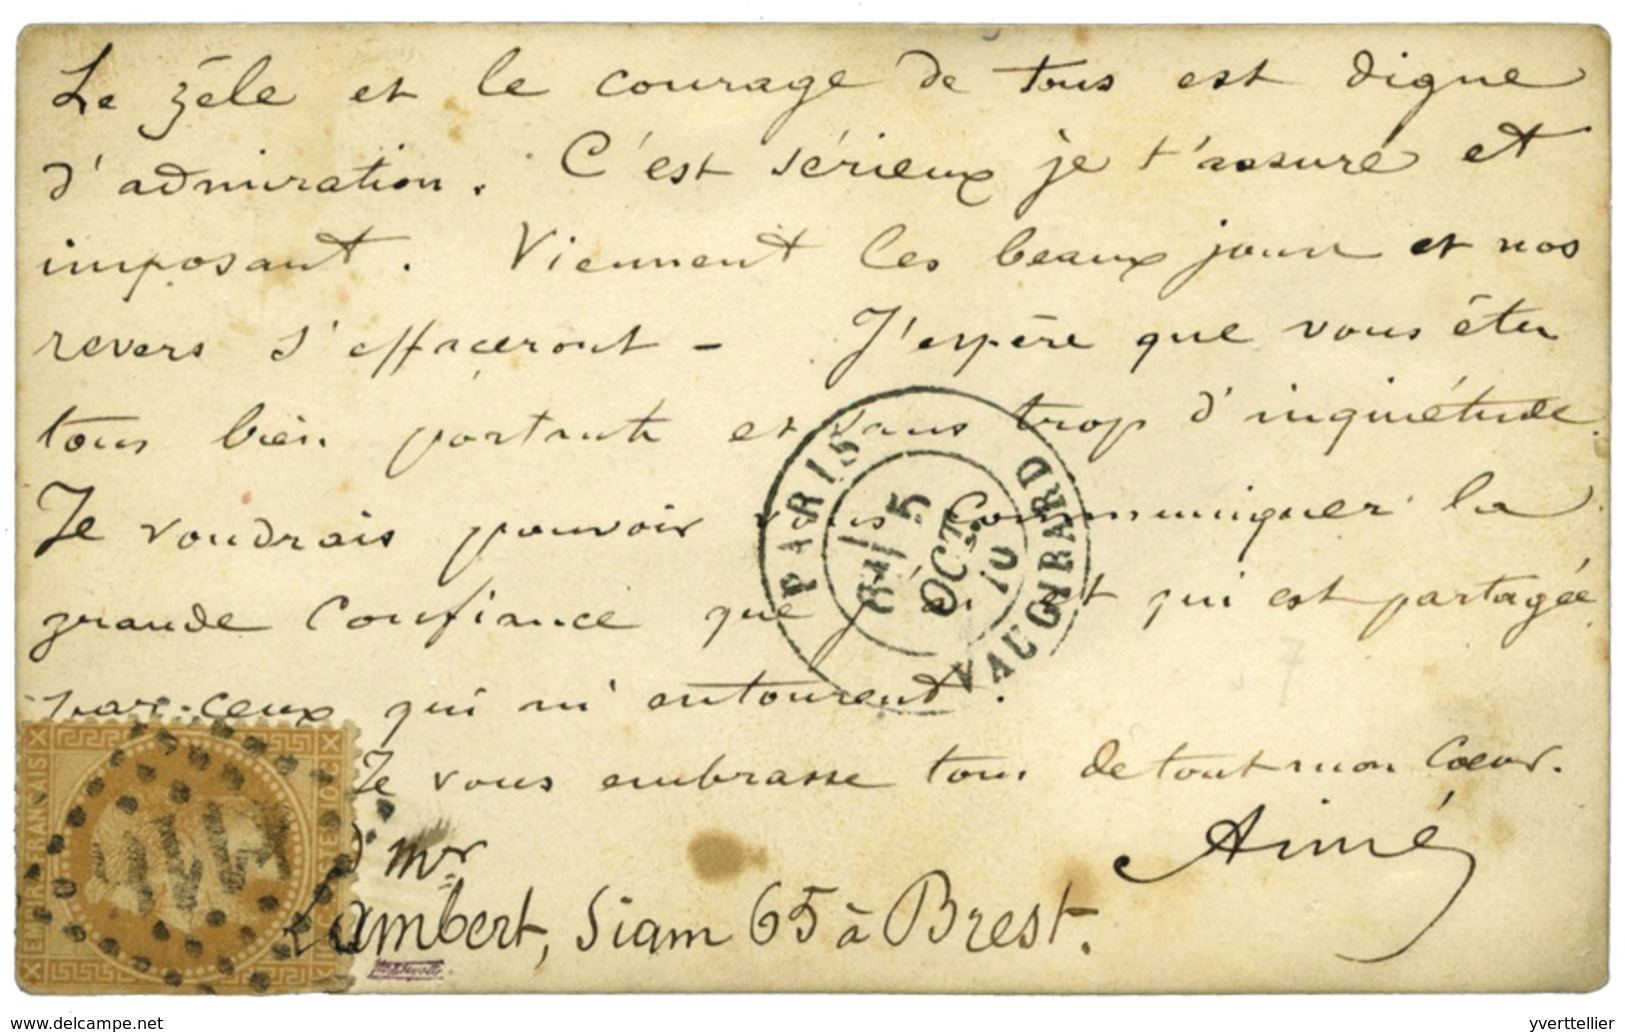 Le zèle et le courage de tous est digne
d'admiration. C'est sérieux je t'assure et
imposant. Viennent les beaux jours et nos
revers s'effaceront - J'espère que vous êtes
tous bien portants et sans trop d'inquiétude.
Je voudrais pouvoir vous communiquer la
grande confiance que j'ai et qui est partagée
par ceux qui m'entourent.
Je vous embrasse tous de tout mon cœur.
Aimé
Mr
Lambert, Siam 65 à Brest.
PARIS
5
OCT.
70
VAUGIRARD
EMPIRE FRANÇAIS
www.delcampe.net
yverttellier